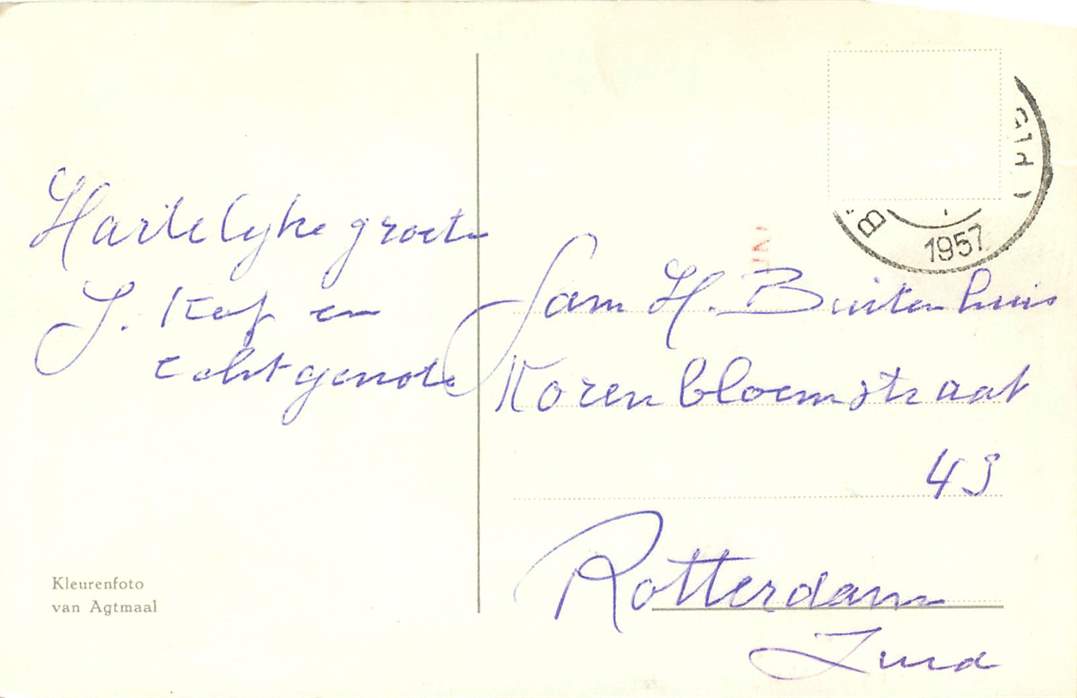 Hartelyke groeten
J. Kef en
echtgenote
Kleurenfoto
van Agtmaal
1957
Fam H. Buitenhuis
Korenbloemstraat
43
Rotterdam
Zuid